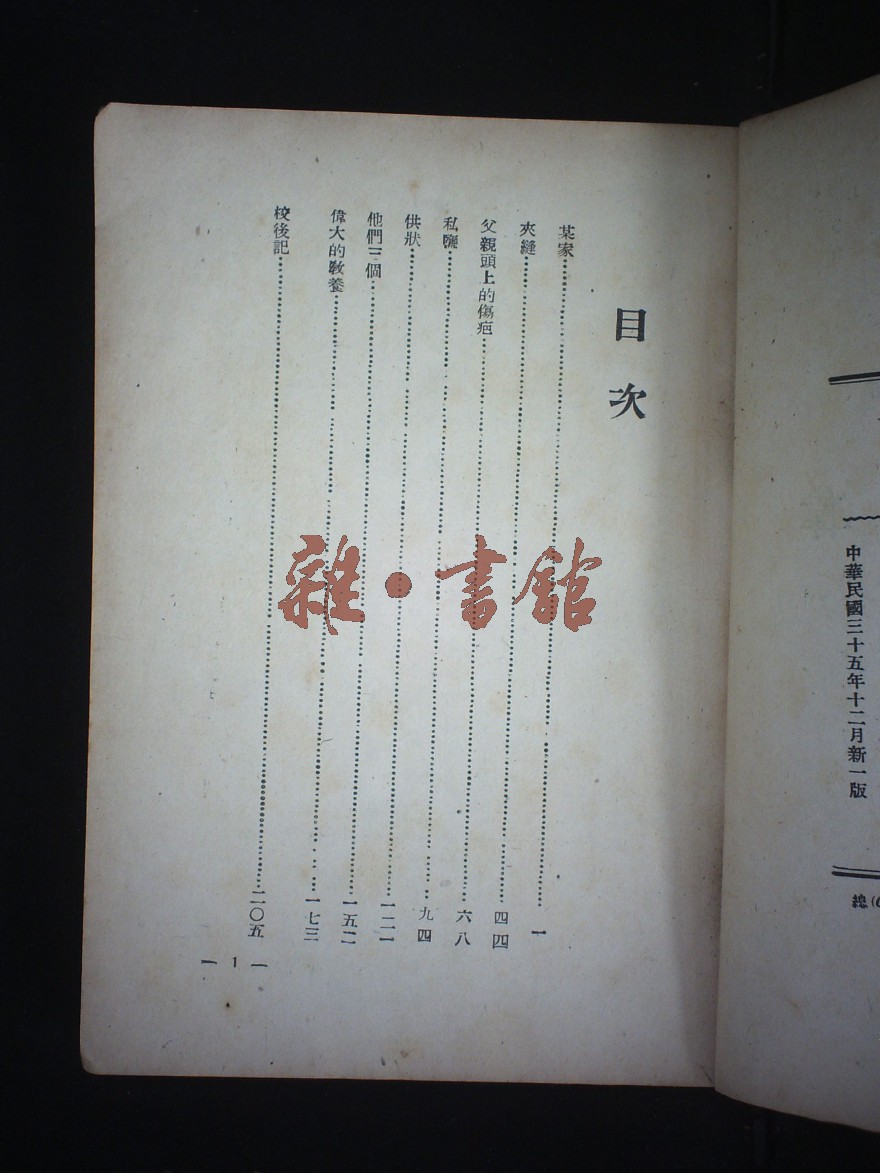 中華民國三十五年十二月新一版
總(
目次
某家 一
夾縫 四四
父親頭上的傷疤 六八
私鹽 九四
供狀 一二一
他們三個 一五二
偉大的教養 一七三
校後記 二〇五
— 1 —
雜·書館